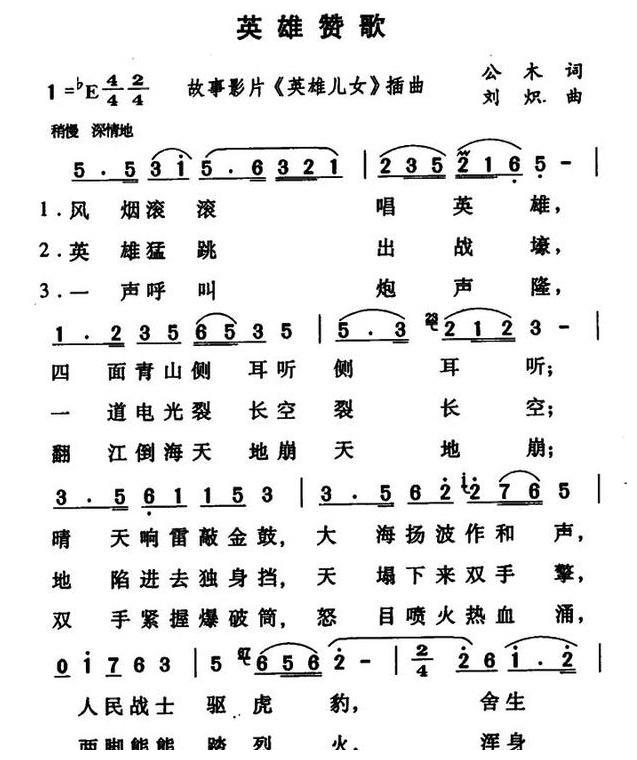 英雄赞歌
1=♭E 4/4 2/4 故事影片《英雄儿女》插曲 公木 词
刘炽 曲
稍慢 深情地
5 . 5 3 i 5 . 6 3 2 1 | 2 3 5 2 1 6 5 - |
1.风 烟滚 滚 唱 英 雄,
2.英 雄猛 跳 出 战 壕,
3.一 声呼 叫 炮 声 隆,
1 . 2 3 5 6 5 3 5 | 5 . 3 2 1 2 3 - |
四 面青山侧 耳听 侧 耳 听;
一 道电光裂 长空 裂 长 空;
翻 江倒海天 地崩 天 地 崩;
3 . 5 6 1 1 5 3 | 3 . 5 6 2 2 7 6 5 |
晴 天响雷敲金鼓, 大 海扬波作和 声,
地 陷进去独身挡, 天 塌下来双手 擎,
双 手紧握爆破筒, 怒 目喷火热血 涌,
0 i 7 6 3 | 5 6 5 6 2 - | 2/4 2 6 i . 2 |
人民战士 驱 虎 豹, 舍生
两脚熊熊 踏 烈 火, 浑身